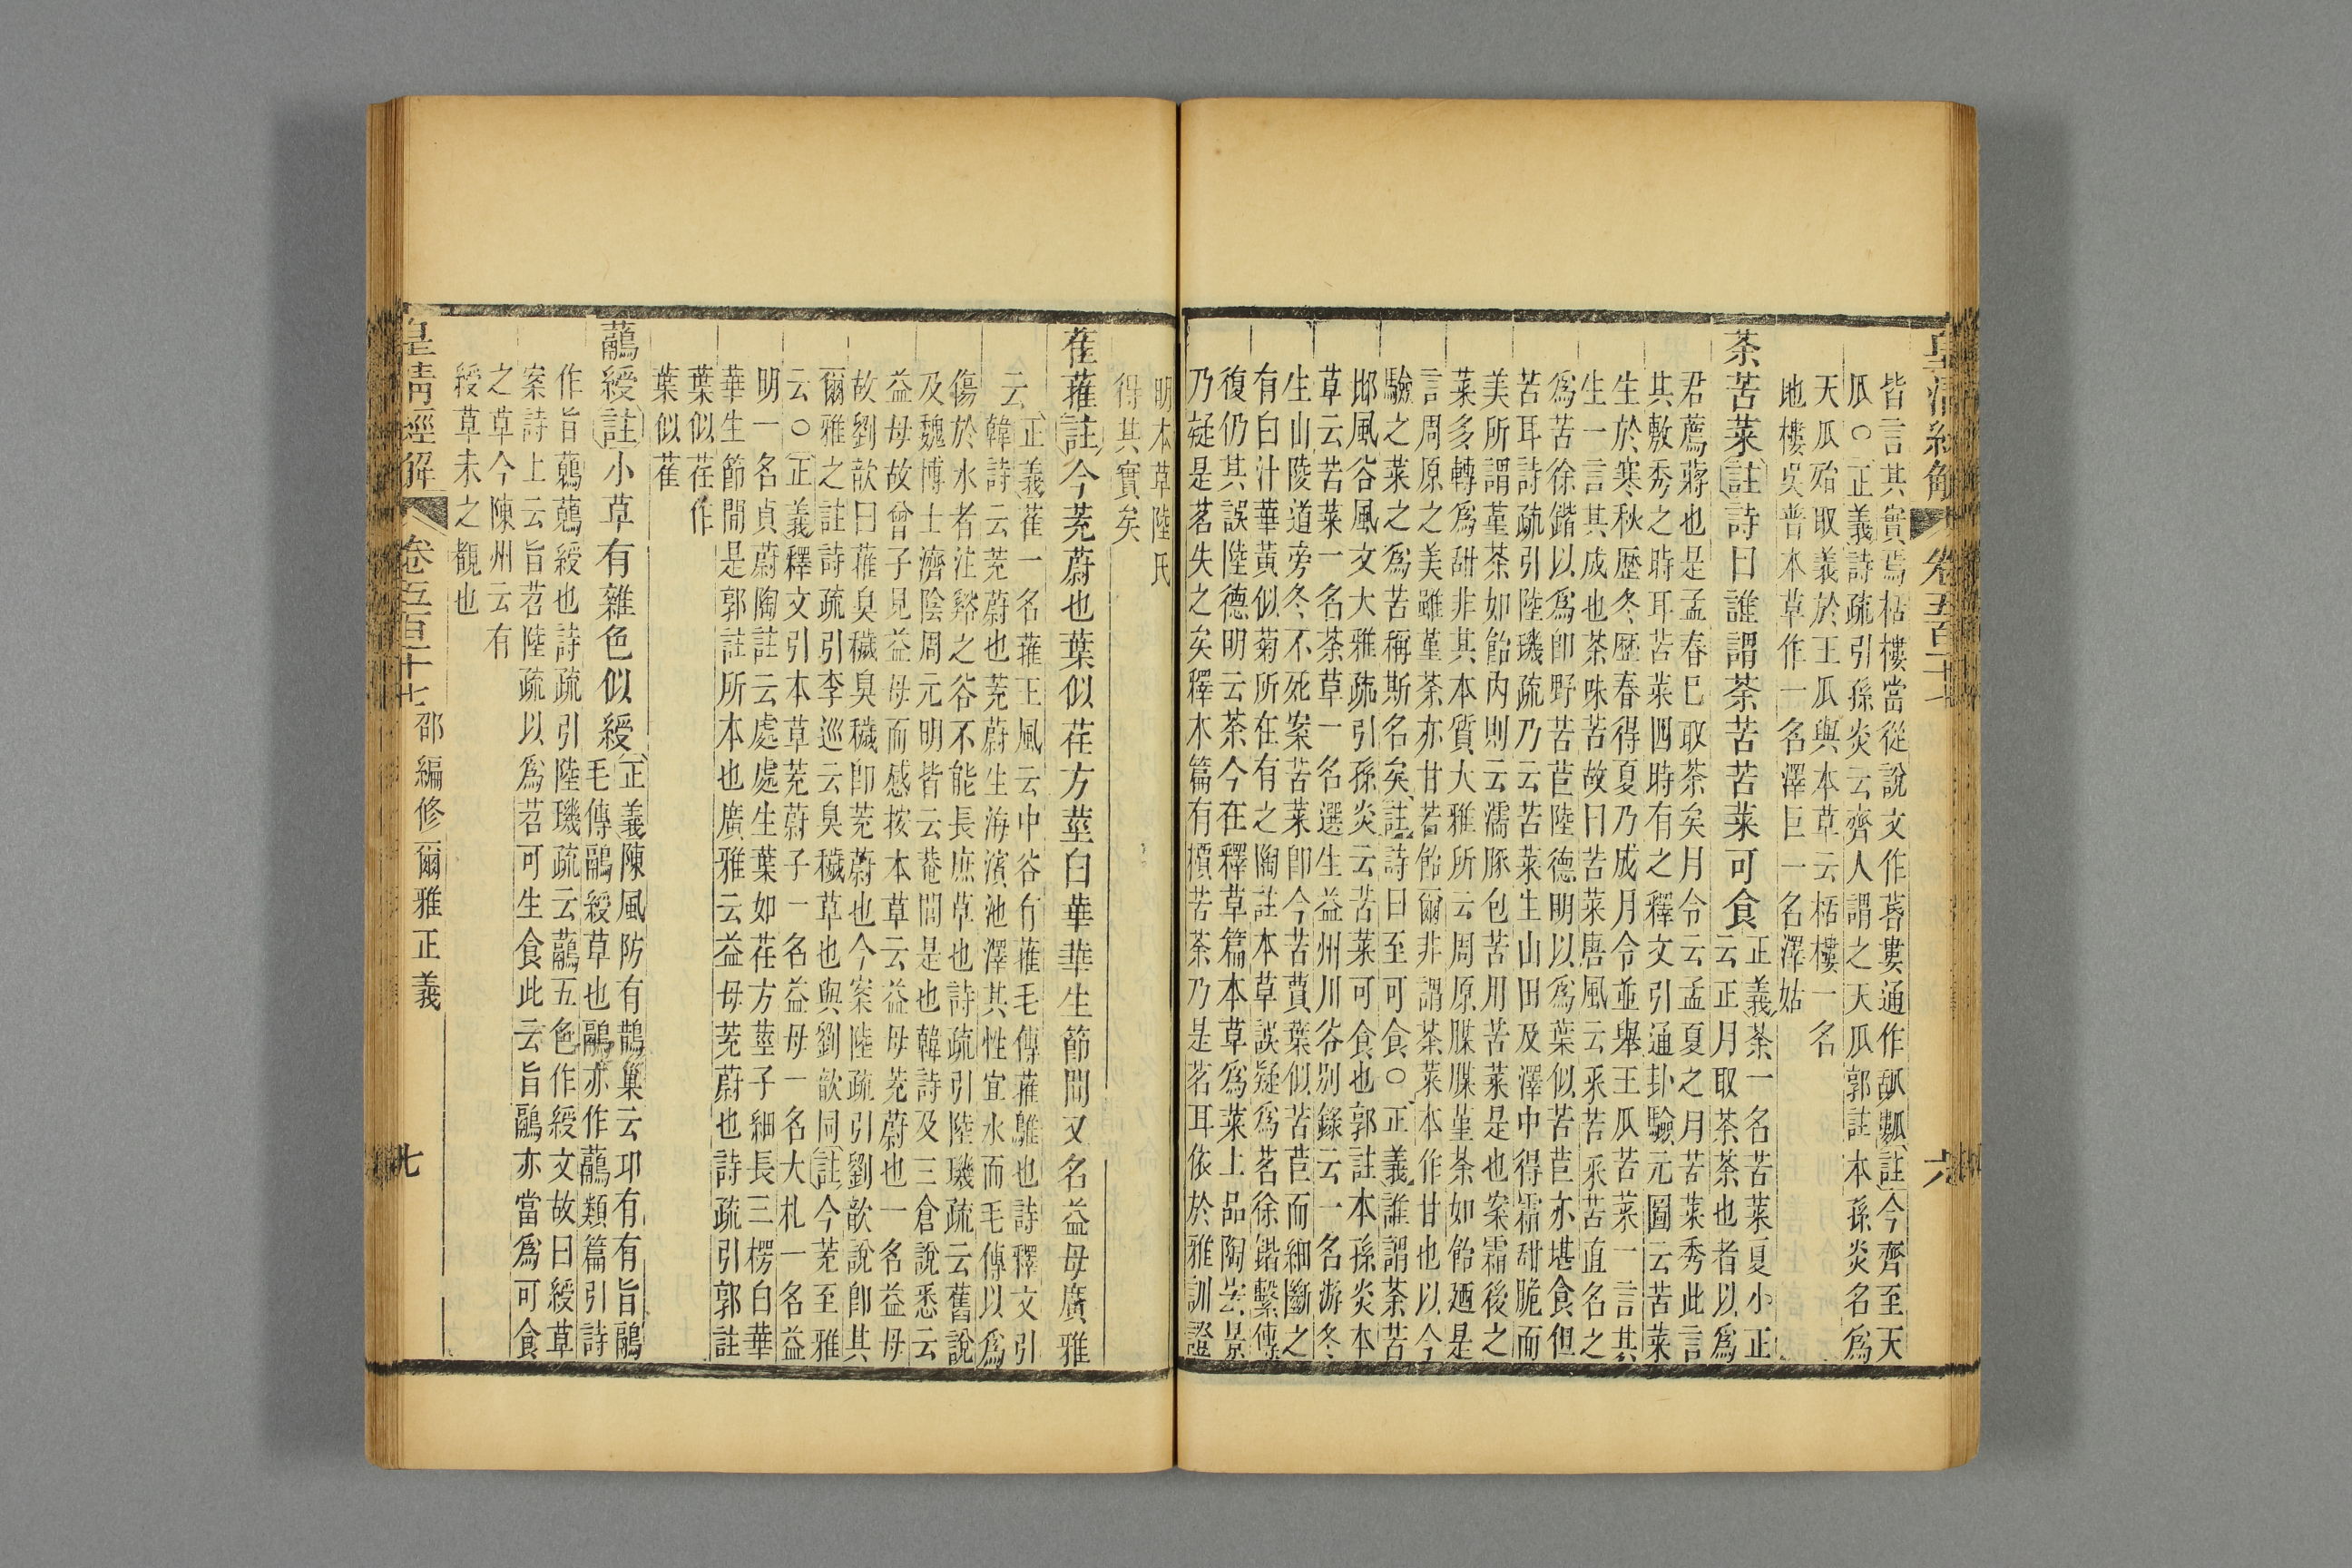 皇清經解 卷五百二十七 六
皆言其實焉栝樓當從說文作𦯄蔞通作䑙㼋註今齊至天
瓜○正義詩疏引孫炎云齊人謂之天瓜郭註本孫炎名爲
天瓜殆取義於王瓜與本草云栝樓一名
地樓吳普本草作一名澤巨一名澤姑
荼苦菜註詩曰誰謂荼苦苦菜可食正義荼一名苦菜夏小正
云正月取荼荼也者以爲
君薦蔣也是孟春巳取荼矣月令云孟夏之月苦菜秀此言
其敷秀之時耳苦菜四時有之釋文引通卦驗元圖云苦菜
生於寒秋歷冬歷春得夏乃成月令並舉王瓜苦菜一言其
生一言其成也荼味苦故曰苦菜唐風云采苦采苦直名之
爲苦徐鍇以爲卽野苦苣陸德明以爲葉似苦苣亦堪食但
苦耳詩疏引陸璣疏乃云苦菜生山田及澤中得霜甜脆而
美所謂堇荼如飴內則云濡豚包苦用苦菜是也案霜後之
菜多轉爲甜非其本質大雅所云周原膴膴堇荼如飴廼是
言周原之美雖堇荼亦甘若飴爾非謂荼菜本作甘也以今
驗之菜之爲苦稱斯名矣註詩曰至可食○正義誰謂荼苦
邶風谷風文大雅疏引孫炎云苦菜可食也郭註本孫炎本
草云苦菜一名荼草一名選生益州川谷別錄云一名游冬
生山陵道旁冬不死案苦菜卽今苦蕒葉似苦苣而細斷之
有白汁華黃似菊所在有之陶註本草誤疑爲茗徐鍇繫傳
復仍其誤陸德明云荼今在釋草篇本草爲菜上品陶宏景
乃疑是茗失之矣釋木篇有檟苦荼乃是茗耳依於雅訓證
明本草陸氏
得其實矣
萑蓷註今茺蔚也葉似荏方莖白華華生節間又名益母廣雅
云正義萑一名蓷王風云中谷有蓷毛傳蓷鵻也詩釋文引
韓詩云茺蔚也茺蔚生海濱池澤其性宜水而毛傳以爲
傷於水者注谿之谷不能長庶草也詩疏引陸璣疏云舊說
及魏博士濟陰周元明皆云菴閭是也韓詩及三倉說悉云
益母故曾子見益母而感按本草云益母茺蔚也一名益母
故劉歆曰蓷臭穢臭穢卽茺蔚也今案陸疏引劉歆說卽其
爾雅之註詩疏引李巡云臭穢草也與劉歆同註今茺至雅
云○正義釋文引本草茺蔚子一名益母一名大札一名益
明一名貞蔚陶註云處處生葉如荏方莖子細長三楞白華
華生節間是郭註所本也廣雅云益母茺蔚也詩疏引郭註
葉似荏作
葉似萑
虉綬註小草有雜色似綬正義陳風防有鵲巢云邛有有旨鷊
毛傳鷊綬草也鷊亦作虉類篇引詩
作旨鷊鷊綬也詩疏引陸璣疏云虉五色作綬文故曰綬草
案詩上云旨苕陸疏以爲苕可生食此云旨鷊亦當爲可食
之草今陳州云有
綬草未之觀也
皇清經解 卷五百二十七 邵編修爾雅正義 七